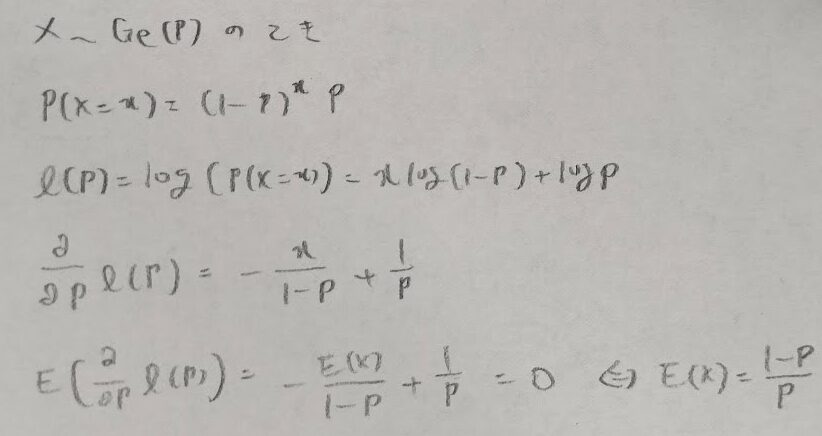 X ~ Ge(P) のとき
P(X=x) = (1-P)^x P
l(P) = log (P(X=x)) = x log (1-P) + log P
∂/∂P l(P) = - x/(1-P) + 1/P
E(∂/∂P l(P)) = - E(X)/(1-P) + 1/P = 0 ⇔ E(X) = (1-P)/P